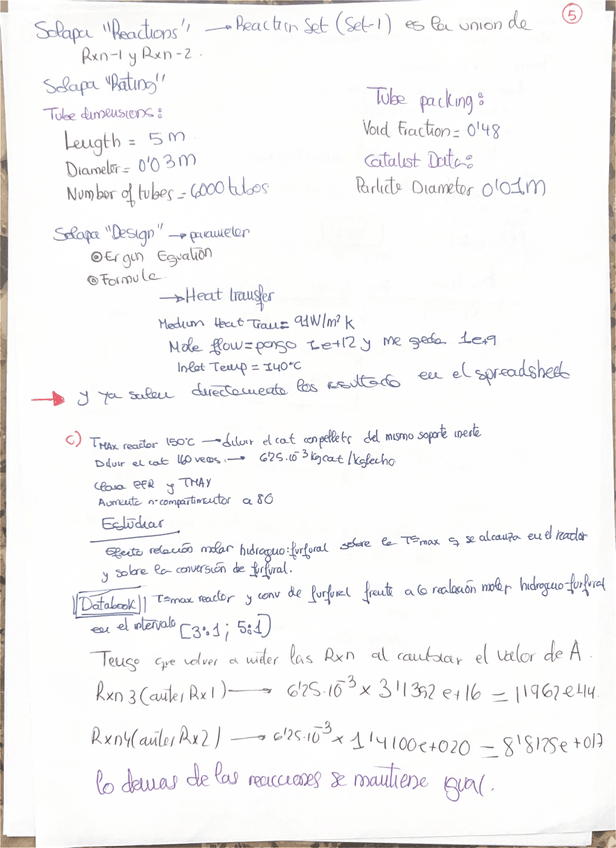 5
Solapa "Reactions" → Reaction Set (Set-1) es la union de
Rxn-1 y Rxn-2.
Solapa "Rating"
Tube dimensions:
Length = 5 m
Diameter = 0'03 m
Number of tubes = 6000 tubos
Tube packing:
Void Fraction = 0'48
Catalist Data:
Particle Diameter 0'01M
Solapa "Design" → parameter
Ergun Equation
Formule
→ Heat transfer
Medium Heat Trans = 91W/m² K
Mole flow = pongo 1e+12 y me queda 1e+9
Inlet Temp = 140°C
→ y ya salen directamente los resultado en el spreadsheet
c) TMAX reactor 150°C → diluir el cat con pellets del mismo soporte inerte
Diluir el cat 160 veces. → 6'25·10⁻³ kg cat/kg lecho
PFR y TMAX
Aumenta nº compartimentos a 80
Estudiar
Efecto relación molar hidrogeno:furfural sobre la Tªmax q se alcanza en el reactor
y sobre la conversión de furfural.
Databook || Tªmax reactor y conv de furfural frente a la realación molar hidrogeno-furfural
en el intervalo [3:1 ; 5:1]
Tengo que volver a meter las Rxn al cambiar el valor de A.
Rxn 3 (antes Rx1) → 6'25·10⁻³ x 3'1392 e+16 = 1'1962e+14
Rxn4 (antes Rx2) → 6'25·10⁻³ x 1'4100e+020 = 8'8125e+017
lo demas de las reacciones se mantiene igual.